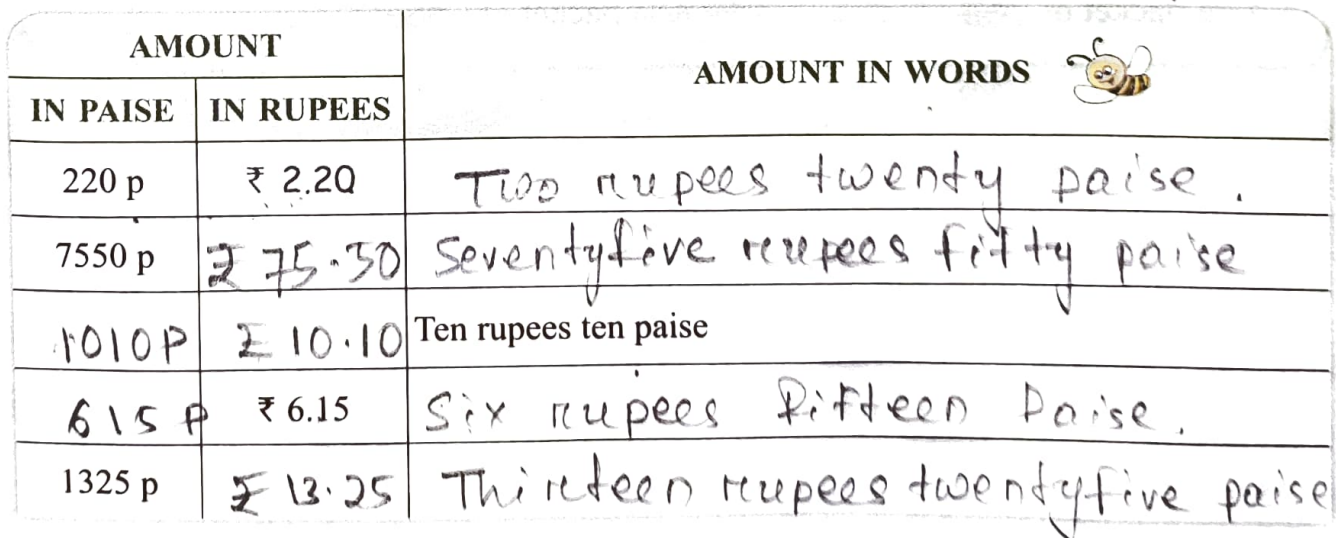 AMOUNT
AMOUNT IN WORDS
IN PAISE IN RUPEES
220 p ₹ 2.20 Two rupees twenty paise.
7550 p ₹ 75.50 Seventyfive rupees fifty paise
1010P ₹ 10.10 Ten rupees ten paise
615 P ₹ 6.15 Six rupees fifteen Paise.
1325 p ₹ 13.25 Thirteen rupees twentyfive paise